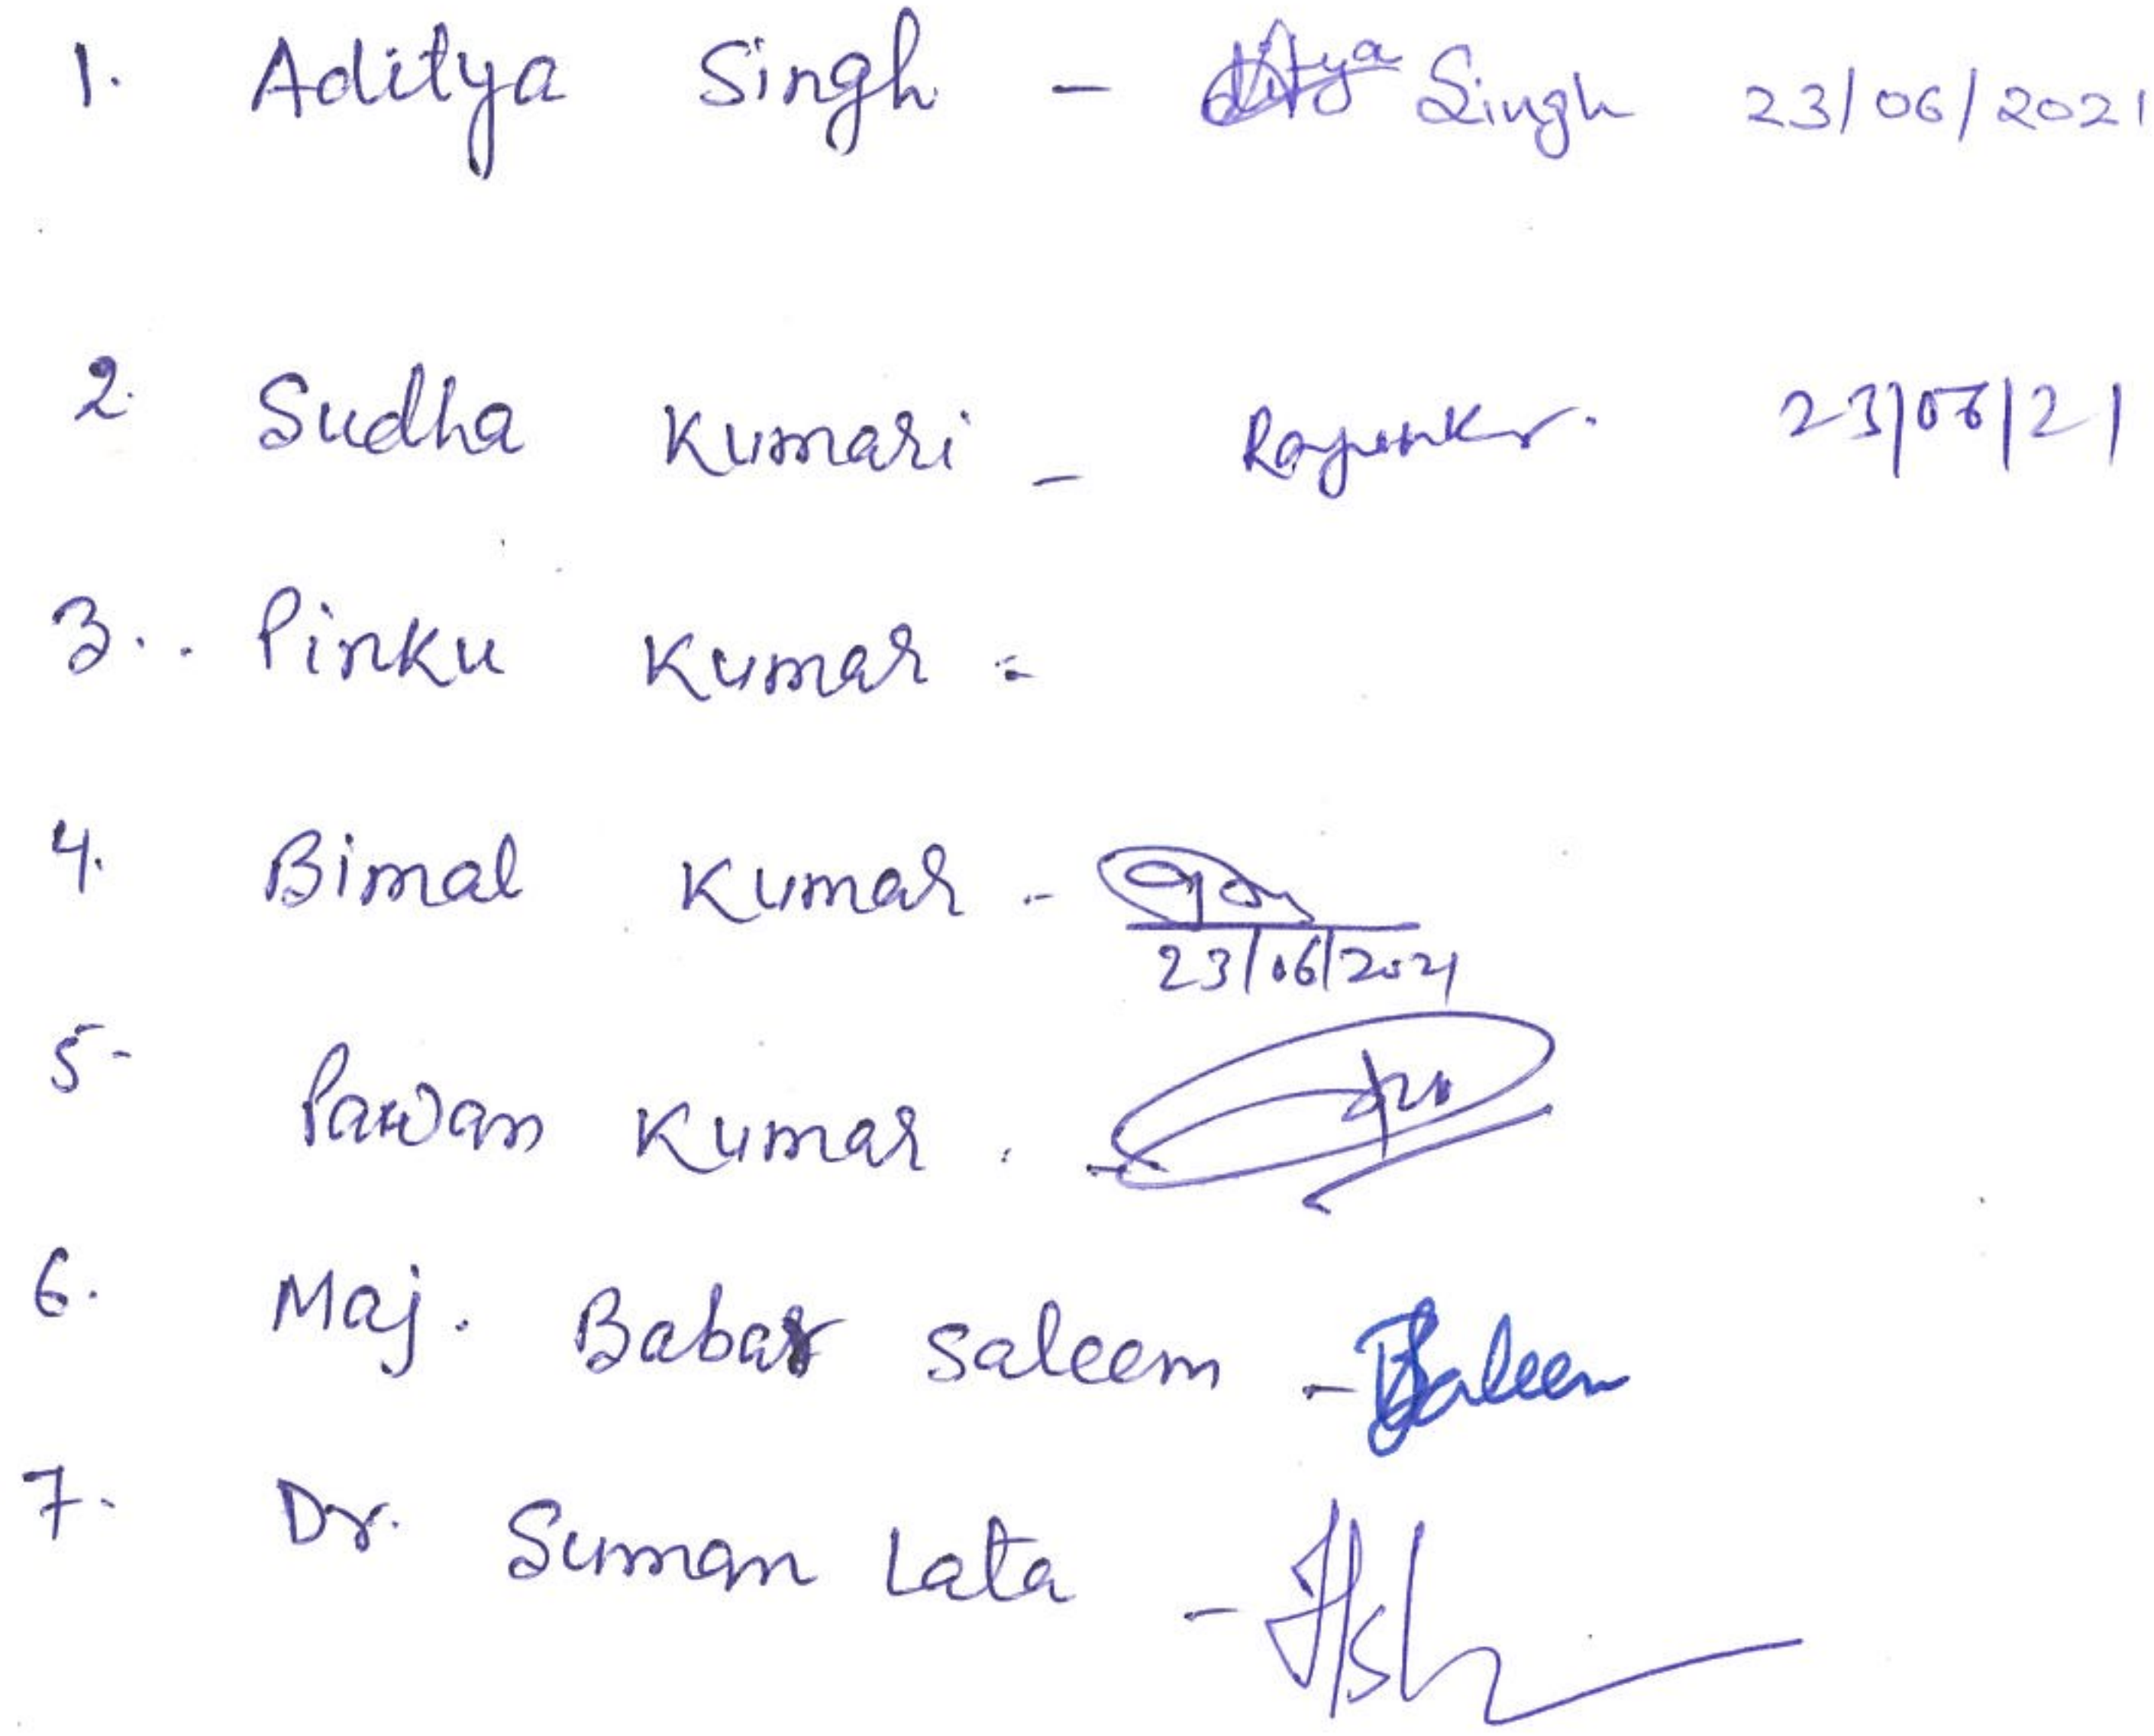 1. Aditya Singh - Aditya Singh 23/06/2021
2. Sudha Kumari - 23/06/21
3.. Pinku Kumar -
4. Bimal Kumar -
23/06/2021
5- Pawan Kumar . -
6. Maj. Babar Saleem - BSaleem
7. Dr. Suman Lata -